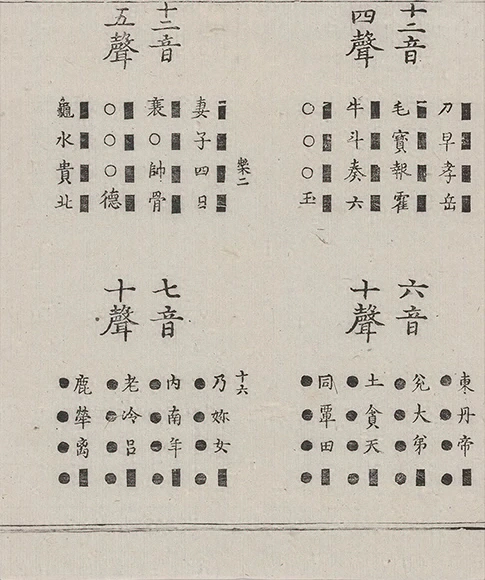 十二音
四聲
刀早孝岳
毛寶報霍
牛斗奏六
○○○玉
六音
十聲
東丹帝■
兌大弟■
土貪天■
同覃田■
十二音
五聲
妻子四日
衰○帥骨
○○○德
龜水貴北
七音
十聲
十六
乃妳女■
內南年■
老冷呂■
鹿犖离■